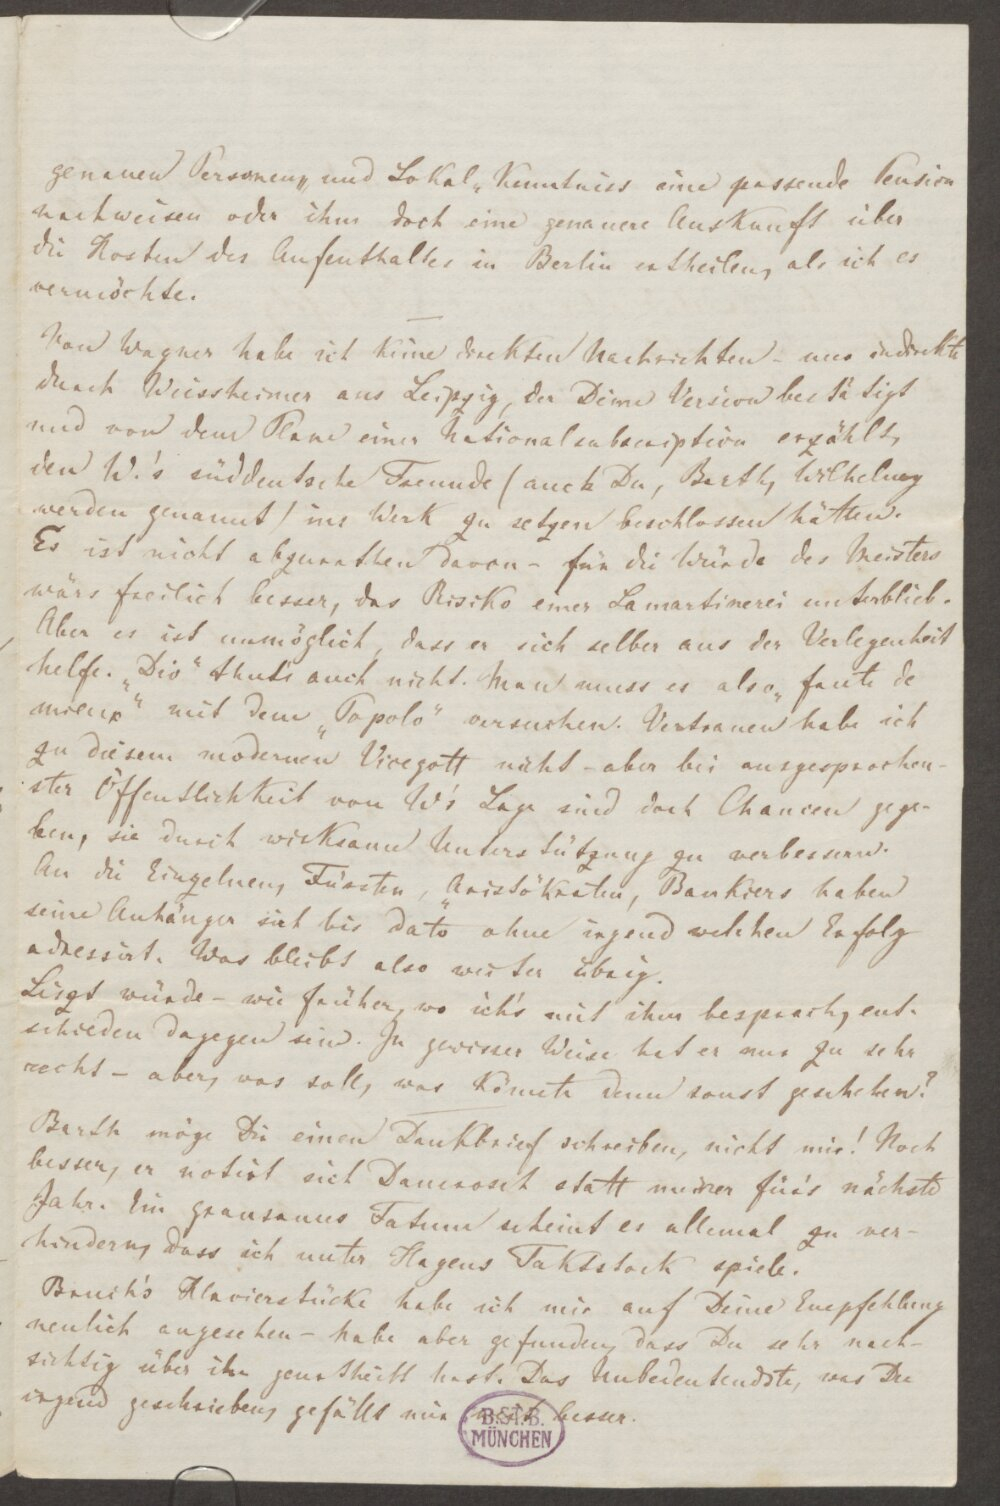 genauen Personen„ und Lokal„Kenntniss eine passende Pension
nachweisen oder ihm doch eine genauere Auskunft über
die Kosten des Aufenthaltes in Berlin ertheilen, als ich es
vermöchte.
Von Wagner habe ich keine direkten Nachrichten – nur indirekte
durch Weissheimer aus Leipzig, der Deine Version bestätigt
und von dem Plane einer Nationalsubscription erzählt,
den W.'s süddeutsche Freunde (auch Du, Barth, Wilhelmy
werden genannt) ins Werk zu setzen beschlossen hätten.
Es ist nicht abzurathen davon – für die Würde des Meisters
wärs freilich besser, das Risiko einer Lamartinerei unterblieb.
Aber es ist unmöglich, dass er sich selber aus der Verlegenheit
helfe. „Dio“ thut's auch nicht. Man muss es also „faute de
mieux“ mit dem „Popolo“ versuchen. Vertrauen habe ich
zu diesem modernen Vicegott nicht – aber bei ausgesprochen-
ster Öffentlichkeit von W's Lage sind doch Chancen gege-
ben, sie durch wirksame Unterstützung zu verbessern.
An die Einzelnen, Fürsten, Aristokraten, Bankiers haben
seine Anhänger sich bis „dato“ ohne irgend welchen Erfolg
adressirt. Was bleibt also weiter übrig.
Liszt würde – wie früher, wo ich's mit ihm besprach, ent-
schieden dagegen sein. In gewisser Weise hat er nur zu sehr
recht – aber, was soll, was könnte denn sonst geschehen?
Barth möge Dir einen Dankbrief schreiben, nicht mir! Noch
besser, er notirt sich Damrosch statt meiner für's nächste
Jahr. Ein grausames Fatum scheint es allemal zu ver-
hindern, dass ich unter Hagens Taktstock spiele.
Bruch's Klavierstücke habe ich mir auf Deine Empfehlung
neulich angesehen – habe aber gefunden, dass Du sehr nach-
sichtig über ihn geurtheilt hast. Das Unbedeutendste, was Du
irgend geschrieben, gefällt mir besser.
B.St.B.
MÜNCHEN